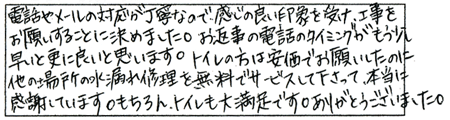 電話やメールの対応が丁寧なので感じの良い印象を受け、工事を
お願いすることに決めました。お返事の電話のタイミングがもう少し
早いと更に良いと思います。トイレの方は安価でお願いしたのに
他の場所の水漏れ修理を無料でサービスして下さって、本当に
感謝しています。もちろん、トイレも大満足です。ありがとうございました。